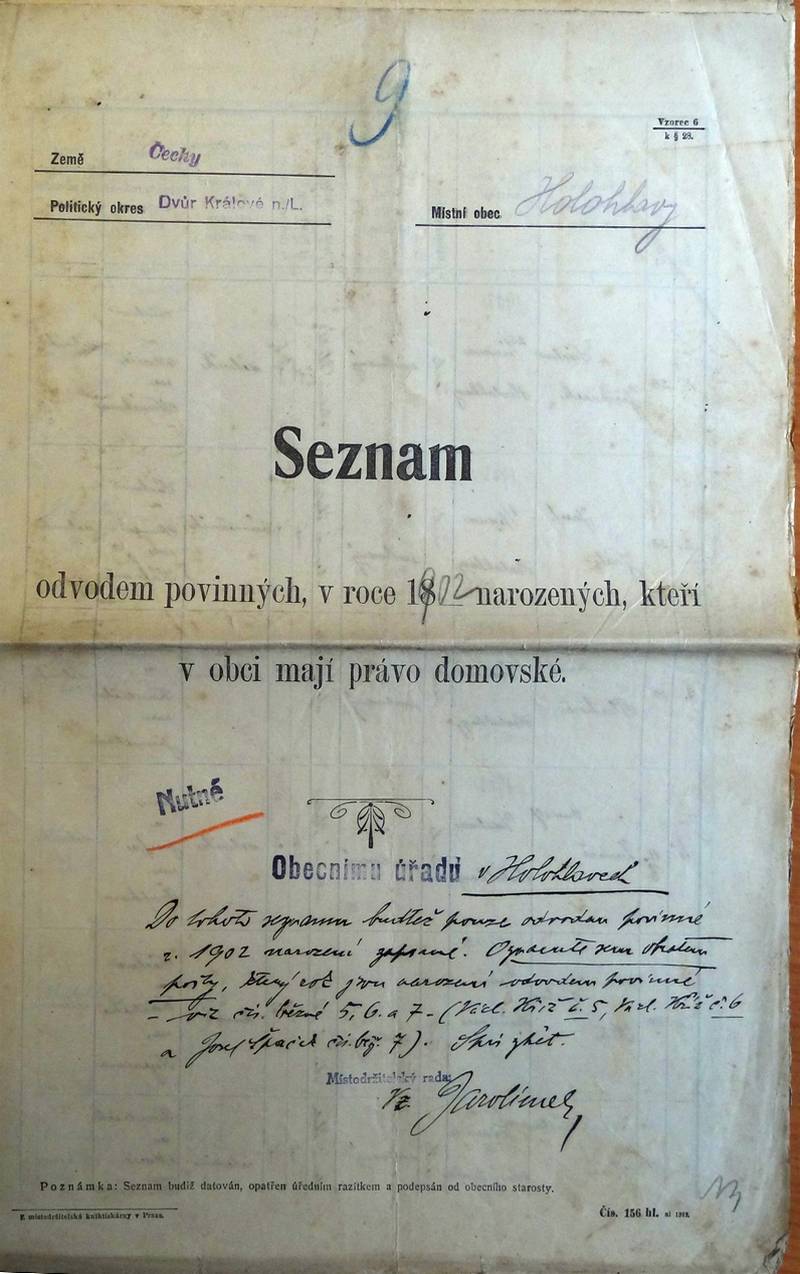 9
Vzorec 6
k § 28.
Země Čechy
Politický okres Dvůr Králové n./L.
Místní obec Holohlavy
Seznam
odvodem povinných, v roce 1902 narozených, kteří
v obci mají právo domovské.
Nutné
Obecnímu úřadu v Holohlavech
Do tohoto seznamu buďtež pouze odvodem povinné
r. 1902 narození zapsané.
kdy jsou narození odvodem povinné
čís. běžné 5, 6. a 7 - (č. 5, č. 6
a Josef Špaček čís. běž. 7). zpět.
Místodržitelský rada:
Jarolímek
Poznámka: Seznam budiž datován, opatřen úředním razítkem a podepsán od obecního starosty.
C. k. místodržitelská knihtiskárny v Praze.
Čís. 156 hl.